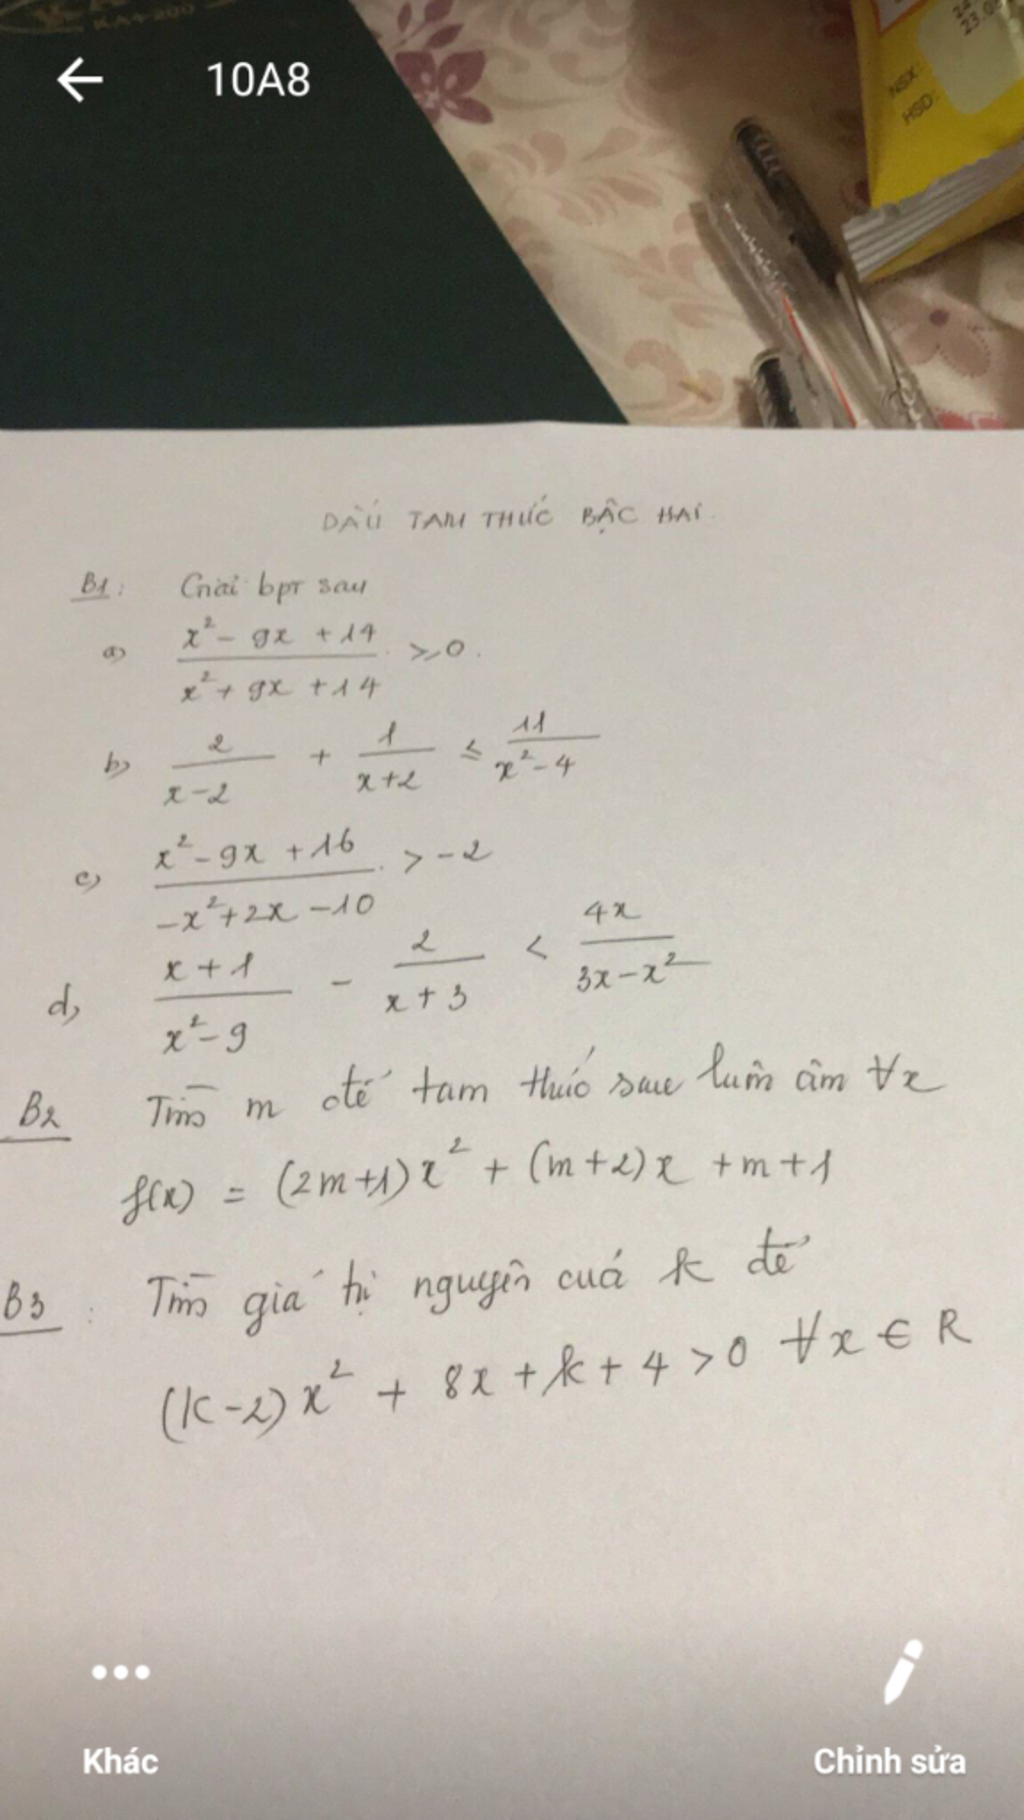 KA4-200
24
23.05
NSX:
HSD:
10A8
DẤU TAM THỨC BẬC HAI.
B1: Giải bpt sau
a) (x² - 9x + 14)/(x² + 9x + 14) ≥ 0.
b) 2/(x-2) + 1/(x+2) ≤ 11/(x²-4)
c) (x² - 9x + 16)/(-x² + 2x - 10) > -2
d) (x+1)/(x²-9) - 2/(x+3) < 4x/(3x-x²)
B2 Tìm m để tam thức sau luôn âm ∀x
f(x) = (2m+1)x² + (m+2)x + m+1
B3: Tìm giá trị nguyên cuả k để
(k-2)x² + 8x + k + 4 > 0 ∀x ∈ R
Khác
Chỉnh sửa